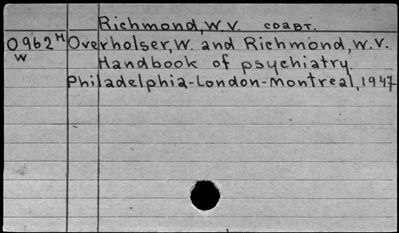 Richmond, W.V. соавт.
O962H Overholser, W. and Richmond, W.V.
W Handbook of psychiatry.
Philadelphia-London-Montreal, 1947